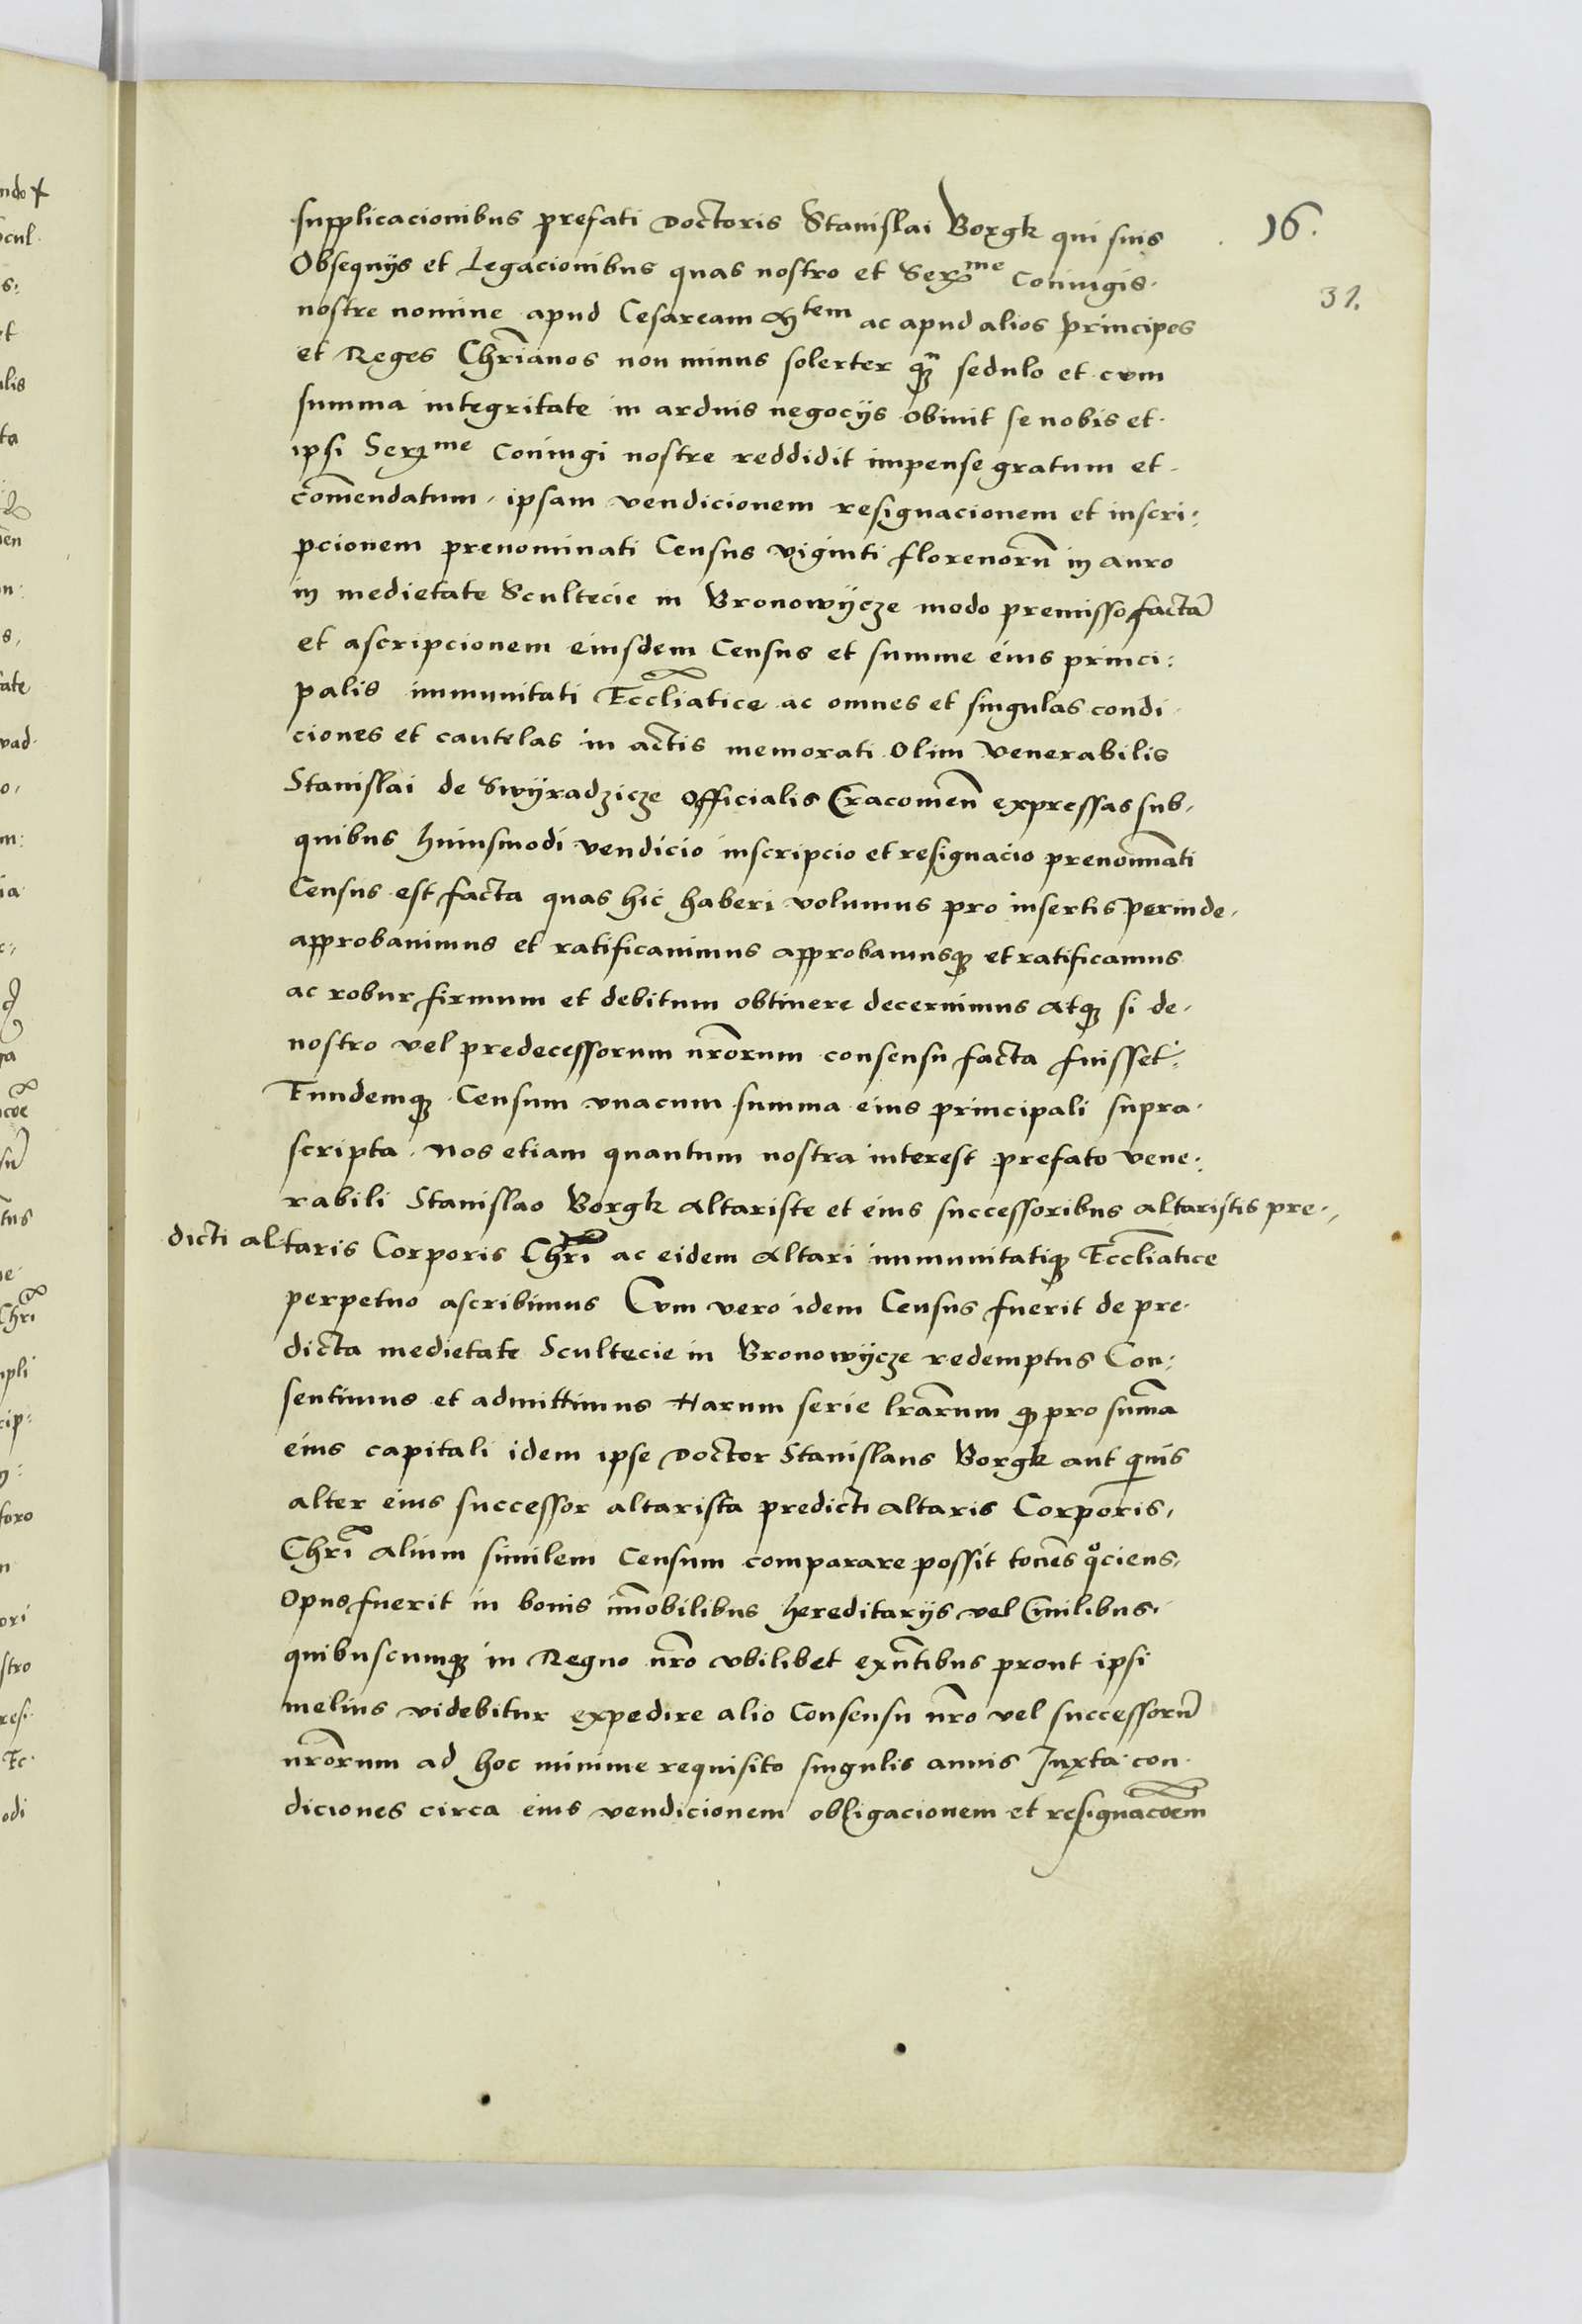 supplicacionibus prefati Doctoris Stanislai Borgk qui suis
16.
Obsequijs et Legacionibus quas nostro et Ser^me Coniugis
31.
nostre nomine apud Cesaream M^tem ac apud alios principes
et Reges Chrianos non minus solerter q̃ sedulo et cum
summa integritate in arduis negocijs obiuit se nobis et
ipsi Ser^me Coniugi nostre reddidit impense gratum et
com̃endatum, ipsam vendicionem resignacionem et inscri:
pcionem prenominati Census viginti florenorũ in auro
in medietate Scultecie in Bronowijcze modo premisso factã
et ascripcionem eiusdem Census et summe eius princi:
palis immunitati Eccl̃iatice ac omnes et singulas condi
ciones et cautelas in actis memorati Olim Venerabilis
Stanislai de Swijradzicze Officialis Cracouieñ expressas sub,
quibus huiusmodi vendicio inscripcio et resignacio prenomĩati
Census est facta quas hic haberi volumus pro insertis perinde,
approbauimus et ratificauimus approbamusq̃ et ratificamus
ac robur firmum et debitum obtinere decernimus Atq̃ si de,
nostro vel predecessorum nr̃orum consensu facta fuisset:
Eundemq̃ Censum vnacum summa eius principali supra
scripta. Nos etiam quantum nostra interest prefato vene:
rabili Stanislao Borgk Altariste et eius successoribus altaristis pre,
dicti altaris Corporis Chr̃i ac eidem Altari immunitatiq̃ Eccl̃iatice
perpetuo ascribimus Cum vero idem Census fuerit de pre
dicta medietate Scultecie in Bronowijcze redemptus Con:
sentimus et admittimus Harum serie lr̃arum q̃ pro sum̃a
eius capitali idem ipse Doctor Stanislaus Borgk aut quis
alter eius successor altarista predicti altaris Corporis,
Chr̃i alium similem Censum comparare possit tocies q°ciens,
Opus fuerit in bonis im̃obilibus hereditarijs vel Ciuilibus
quibuscumq̃ in Regno nr̃o vbilibet exñtibus prout ipsi
melius videbitur expedire alio Consensu nr̃o vel successorũ
nr̃orum ad hoc minime requisito singulis annis Juxta con
diciones circa eius vendicionem obligacionem et resignac̃oem